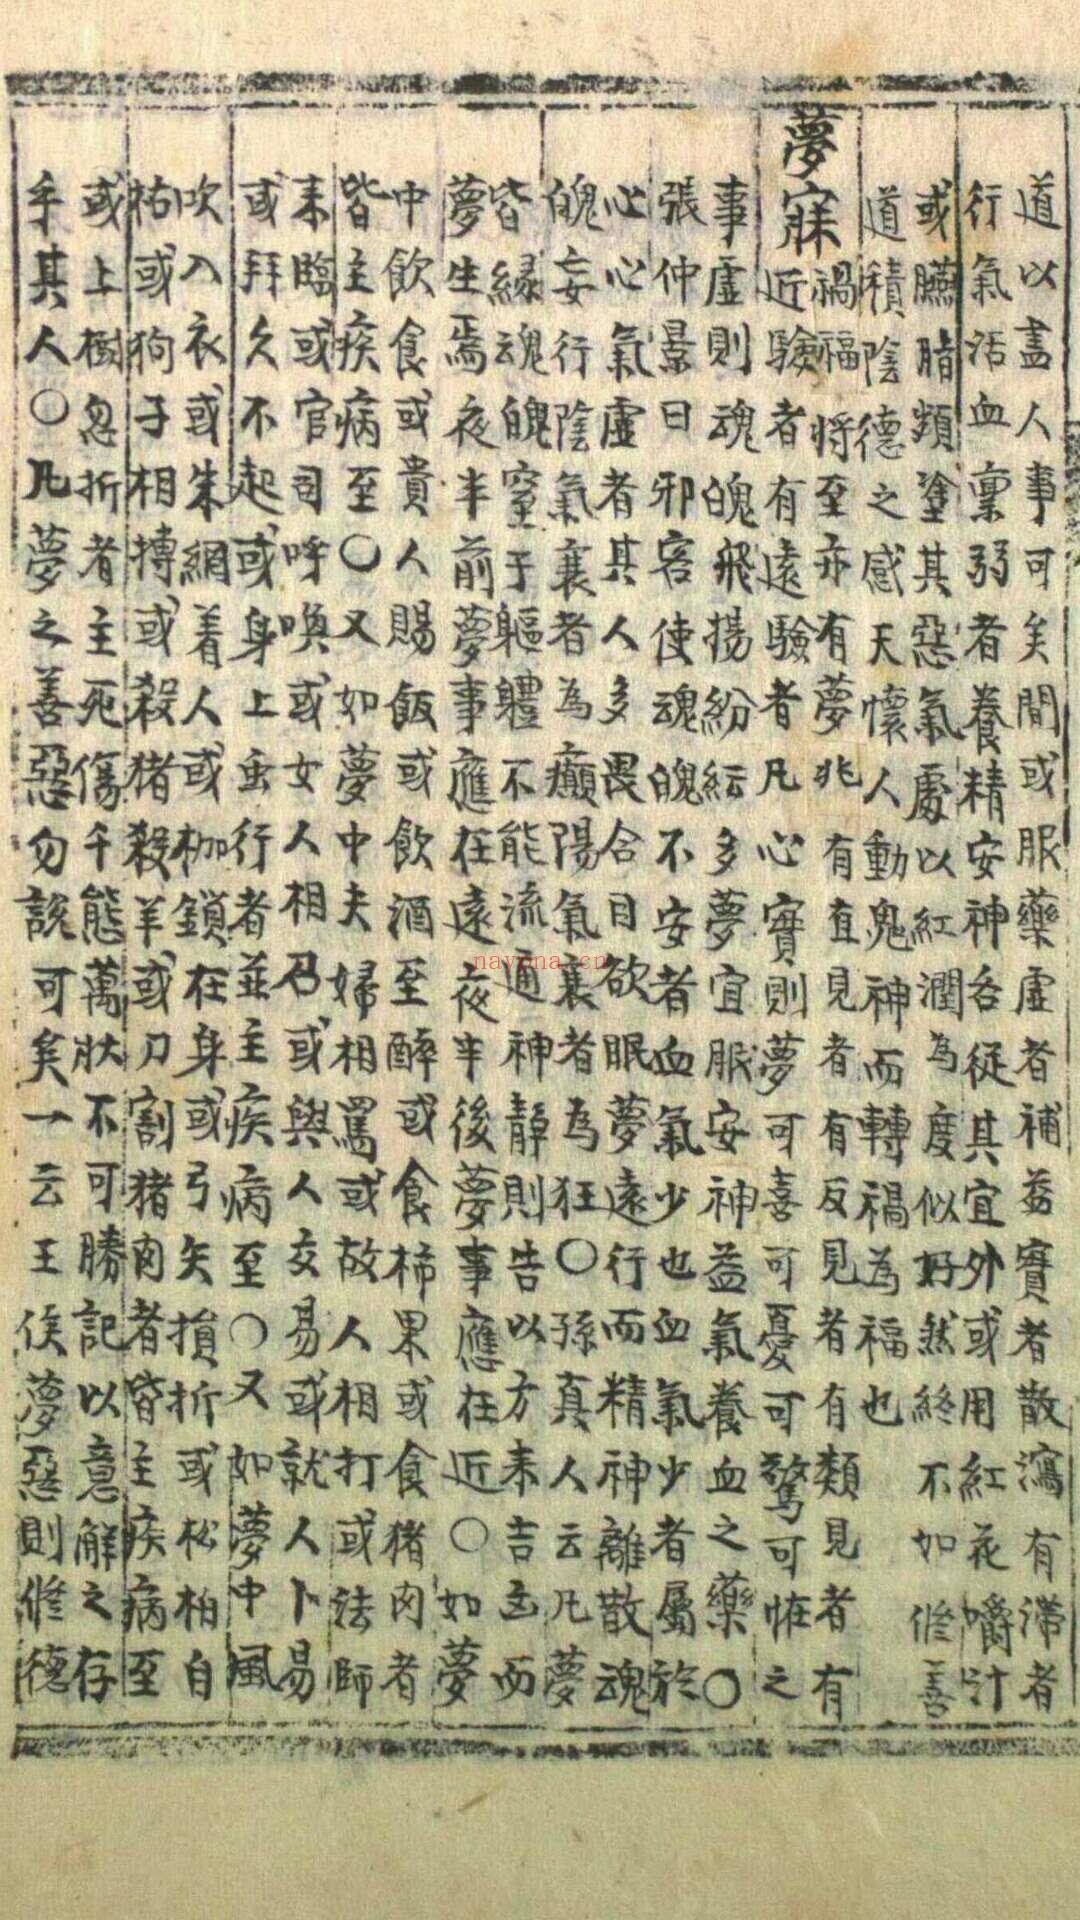 道以盡人事可矣間或服藥虛者補益實者散瀉有滯者
行氣活血稟弱者養精安神各從其宜外或用紅花嚼汁
或臙脂頻塗其惡氣處以紅潤為度似好然終不如修善
道積陰德之感天懷人動鬼神而轉禍為福也
夢寐
禍福將至亦有夢兆有直見者有反見者有類見者有
近驗者有遠驗者凡心實則夢可喜可憂可驚可怪之
事虛則魂魄飛揚紛紜多夢宜服安神益氣養血之藥〇
張仲景曰邪客使魂魄不安者血氣少也血氣少者屬於
心心氣虛者其人多畏合目欲眠夢遠行而精神離散魂
魄妄行陰氣衰者為癲陽氣衰者為狂〇孫真人云凡夢
皆緣魂魄窒于軀體不能流通神靜則告以方来吉凶而
夢生焉夜半前夢事應在遠夜半後夢事應在近〇如夢
中飲食或貴人賜飯或飲酒至醉或食柿果或食猪肉者
皆主疾病至〇又如夢中夫婦相罵或故人相打或法師
来臨或官司呼喚或女人相召或與人交易或就人卜易
或拜久不起或身上虫行者並主疾病至〇又如夢中風
吹入衣或朱網着人或枷鎖在身或弓矢損折或松柏自
枯或狗子相摶或殺猪殺羊或刀割猪肉者皆主疾病至
或上樹忽折者主死傷千態萬狀不可勝記以意解之存
乎其人〇凡夢之善惡勿說可矣一云王侯夢惡則修德
nayona.cn